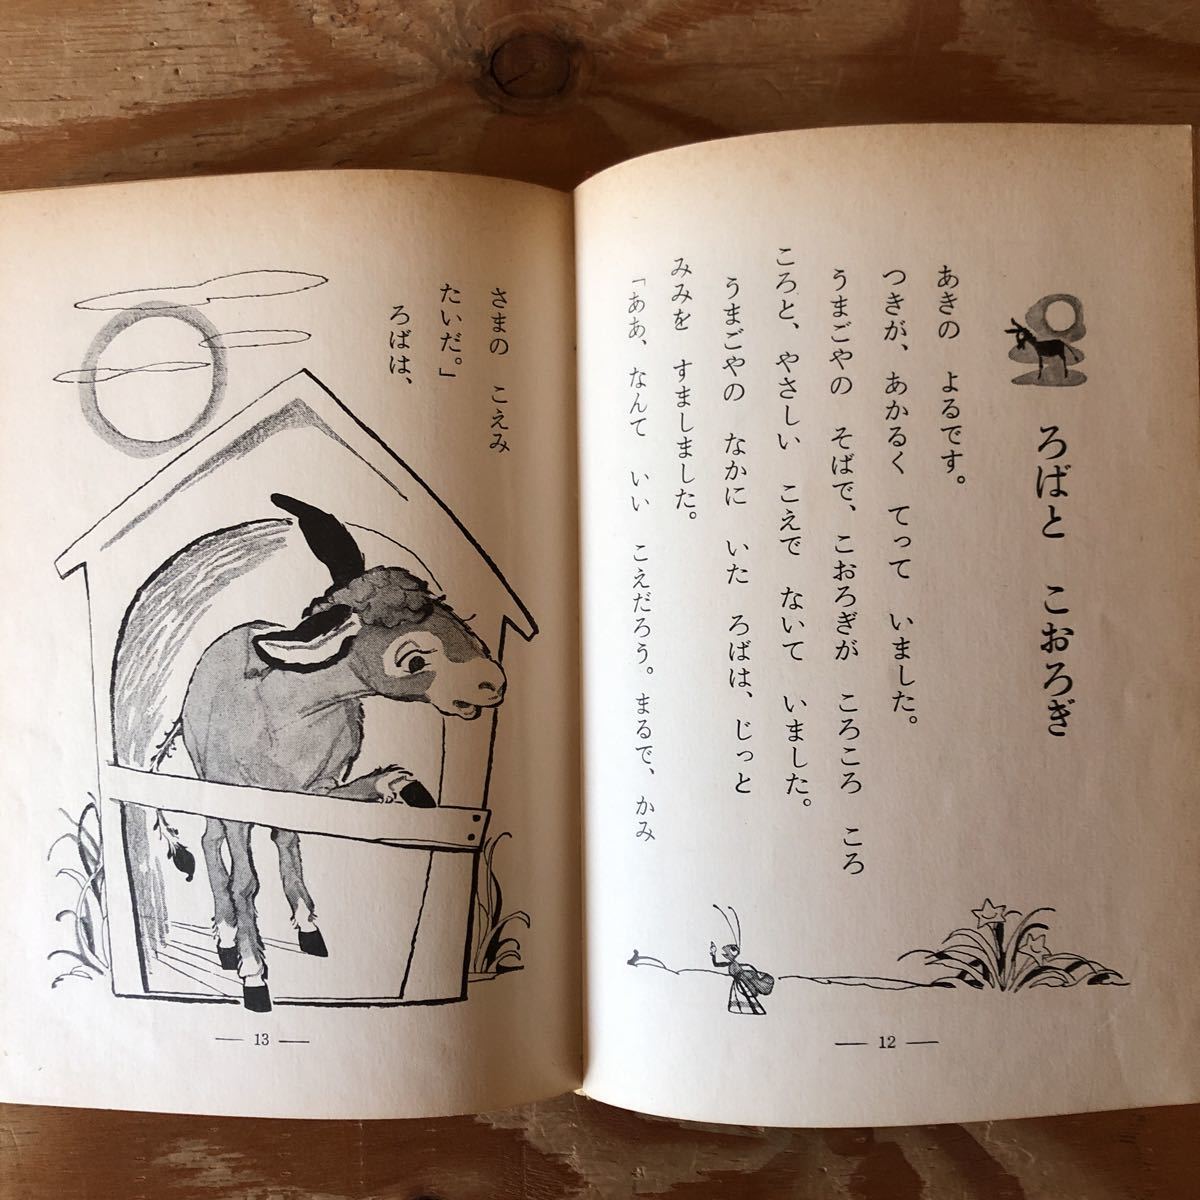 ろばと　こおろぎ
あきの　よるです。
つきが、あかるく　てって　いました。
うまごやの　そばで、こおろぎが　ころころ　ころ
ころと、やさしい　こえで　ないて　いました。
うまごやの　なかに　いた　ろばは、じっと
みみを　すましました。
「ああ、なんて　いい　こえだろう。まるで、かみ
— 12 —
さまの　こえみ
たいだ。」
ろばは、
— 13 —